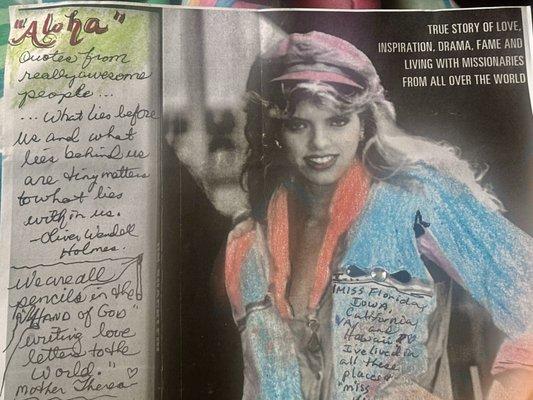 "Aloha"
Quotes from
really awesome
people...
... What lies before
us and what
lies behind us
are tiny matters
to what lies
within us.
-Oliver Wendell
Holmes.
We are all
pencils in the
"HAND of GOD"
writing love
letters to the
world."
Mother Theresa
TRUE STORY OF LOVE,
INSPIRATION, DRAMA, FAME AND
LIVING WITH MISSIONARIES
FROM ALL OVER THE WORLD
Miss Florida,
IOWA,
California
VA, and
Hawaii
I've lived in
all these
places
"miss